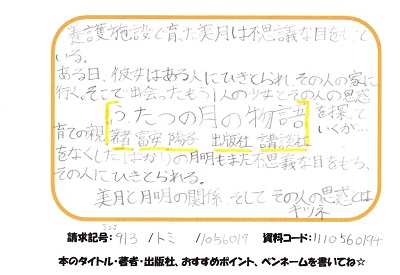 養護施設で育った美月は不思議な目をもって
いる。
ある日、彼女はある人にひきとられ その人の家に
行く。そこで出会ったもう1人の少女とその人の思惑
ふたつの月の物語 を探って
いくが…
著者 富安 陽子 出版社 講談社
育ての親
をなくしたばかりの月明もまた不思議な目をもち、
その人にひきとられる。
美月と月明の関係 そして その人の思惑とは
キツネ
請求記号:913 /トミ /1056019 資料コード:1110560194
本のタイトル・著者・出版社、おすすめポイント、ペンネームを書いてね☆